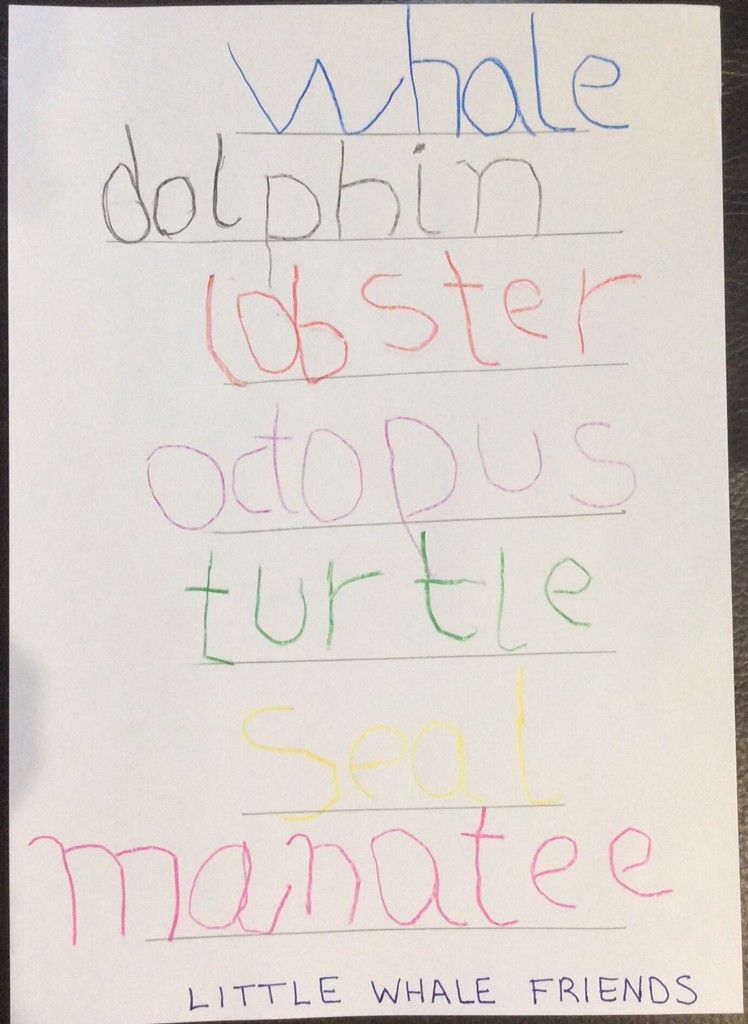 whale
dolphin
lobster
octopus
turtle
seal
manatee
LITTLE WHALE FRIENDS